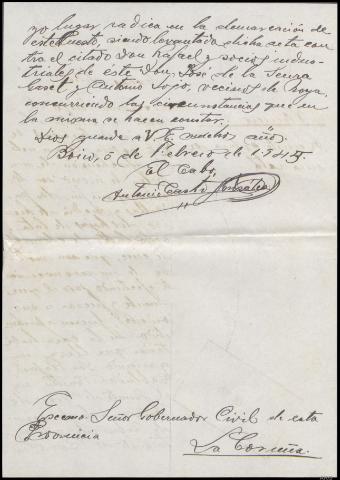 yo lugar radica en la demarcación de
este Puesto, siendo levantada dicha acta con-
tra el citado Don Rafael y socios indus-
triales de este Don José de la
y Antonio vecinos de Noya,
concurriendo las circunstancias que en
la misma se hacen constar.
Dios guarde a V.E. muchos años.
Boiro, 6 de Febrero de 1945.
El Cabo,
Antonio Castro González
Excmo. Señor Gobernador Civil de esta
Provincia
La Coruña.